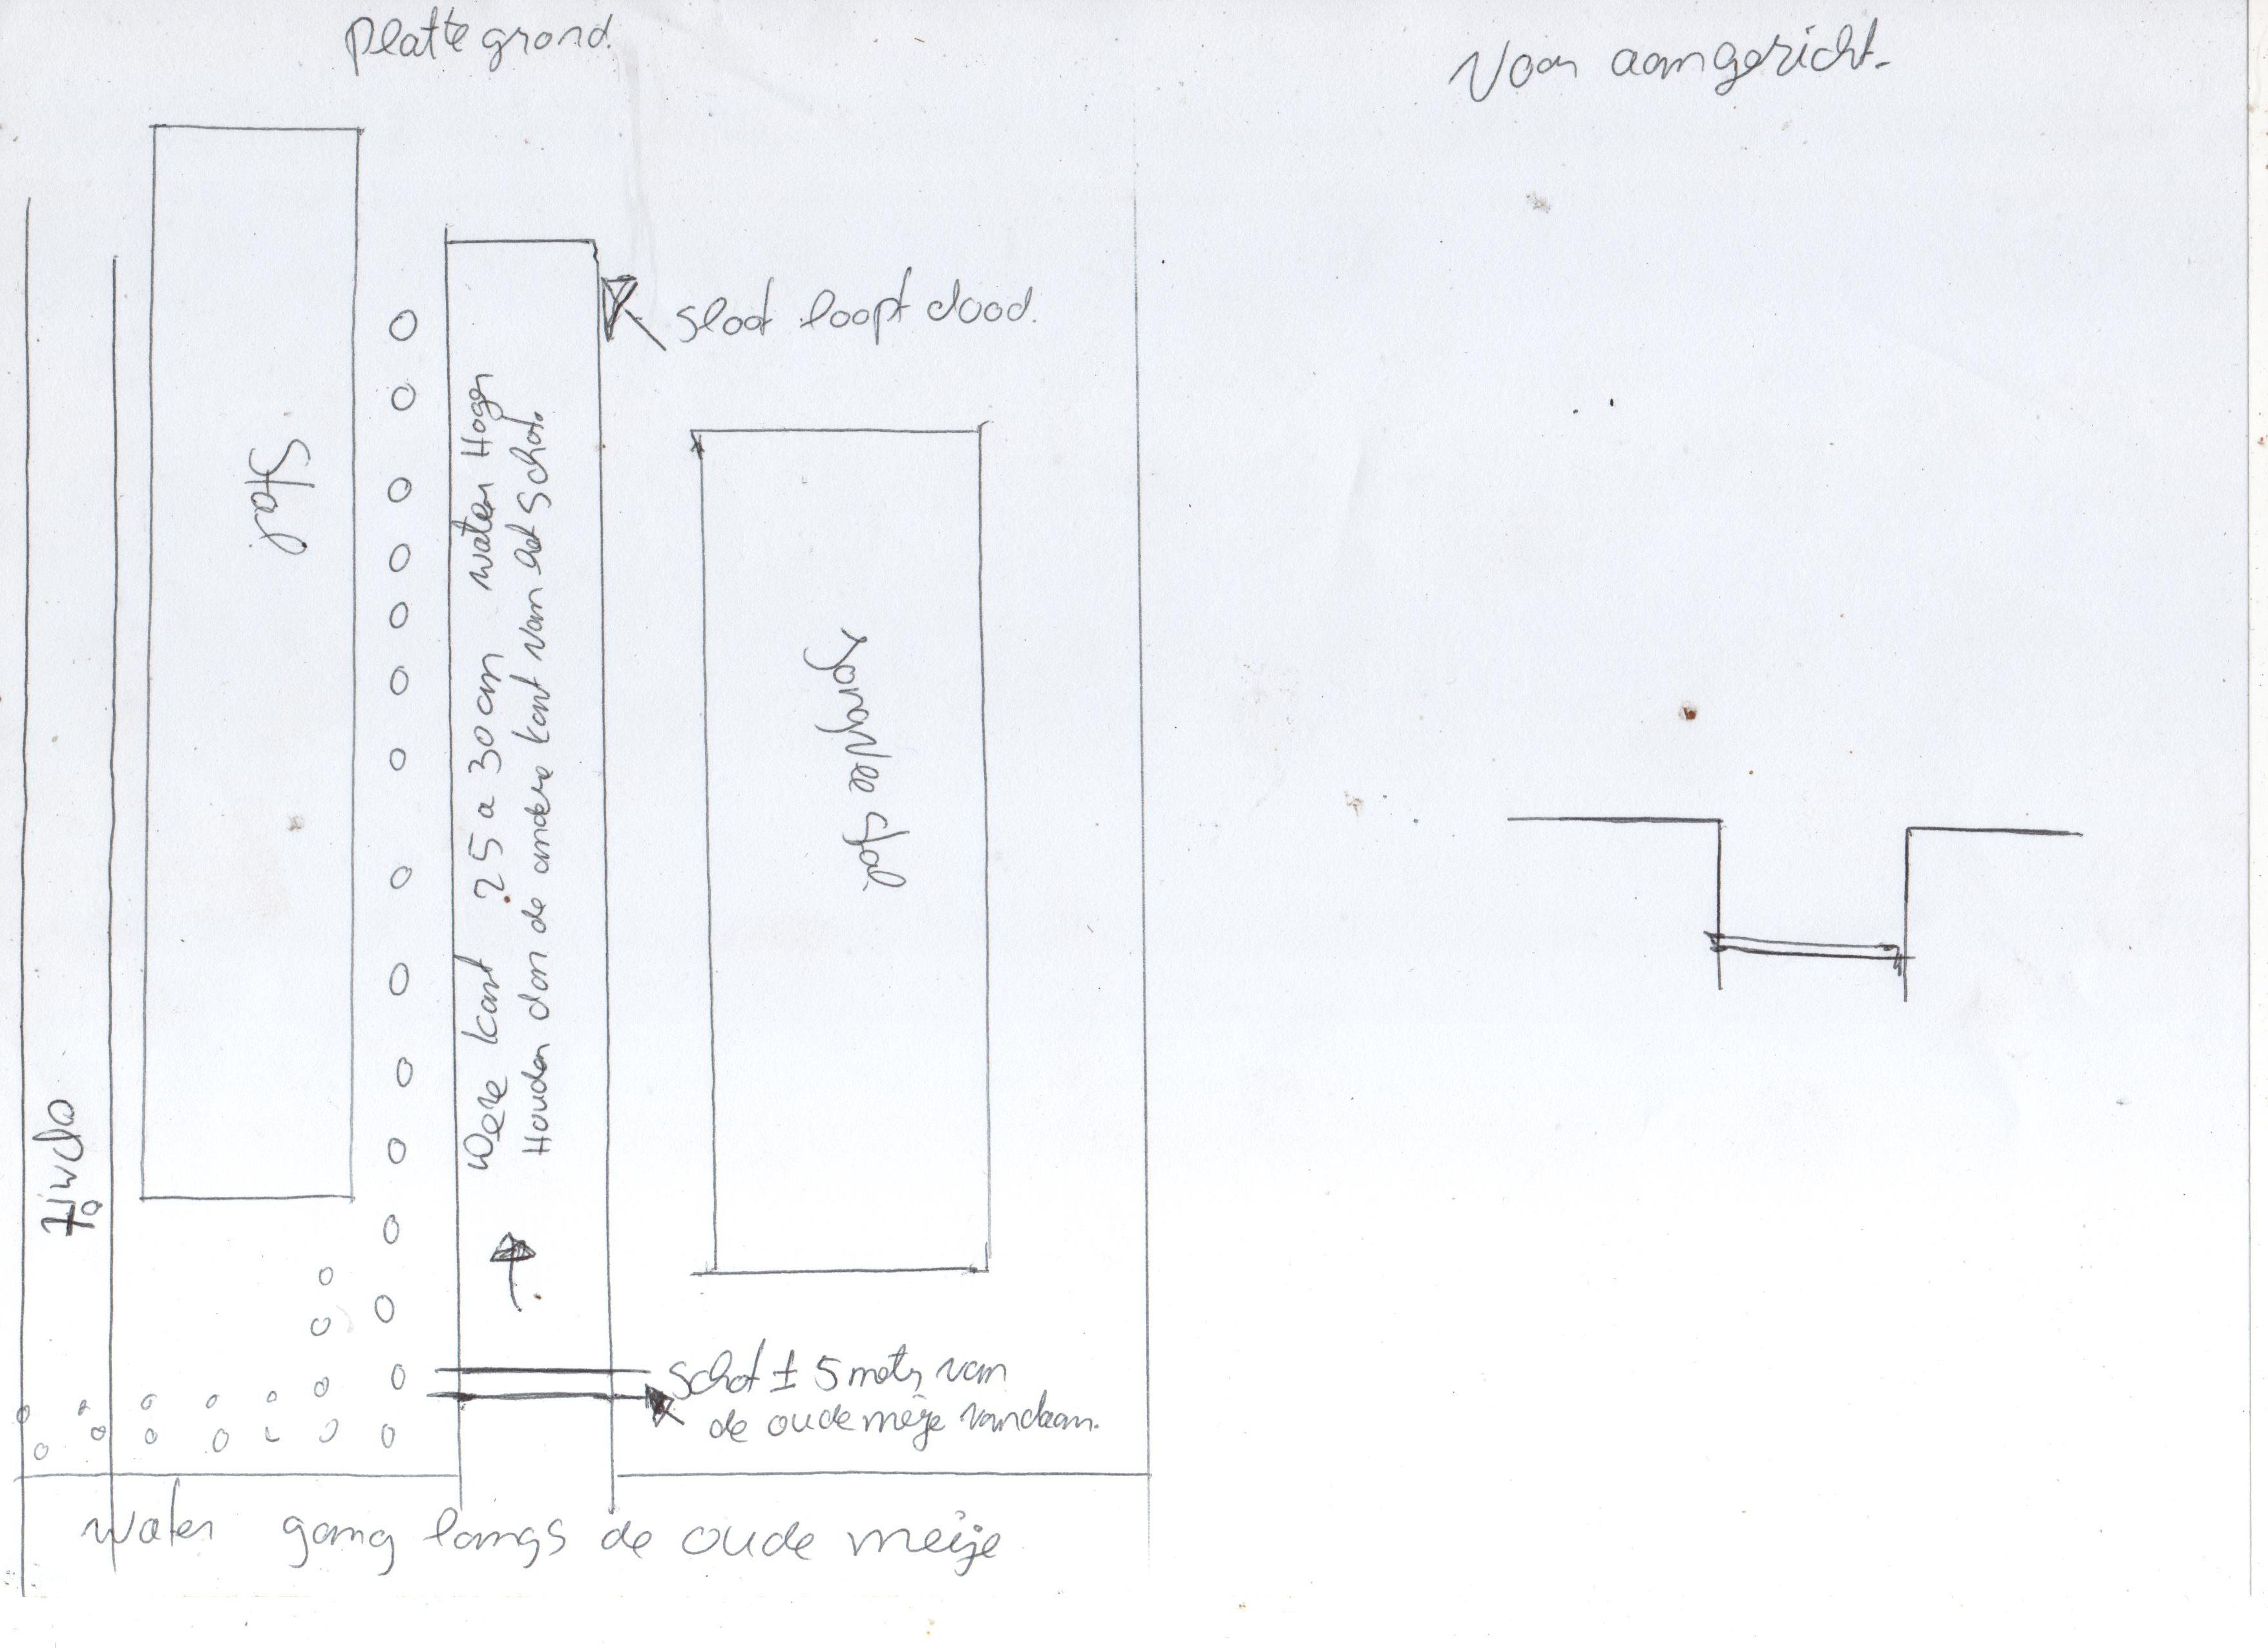 platte grond.
Voor aangezicht.
sloot loopt dood.
Stal
Deze kant 25 a 30 cm water Hoger
Houden dan de andere kant van het schot.
Jongvee stal.
Schot ± 5 metr van
de oude meije vandaan.
water gang langs de oude meije